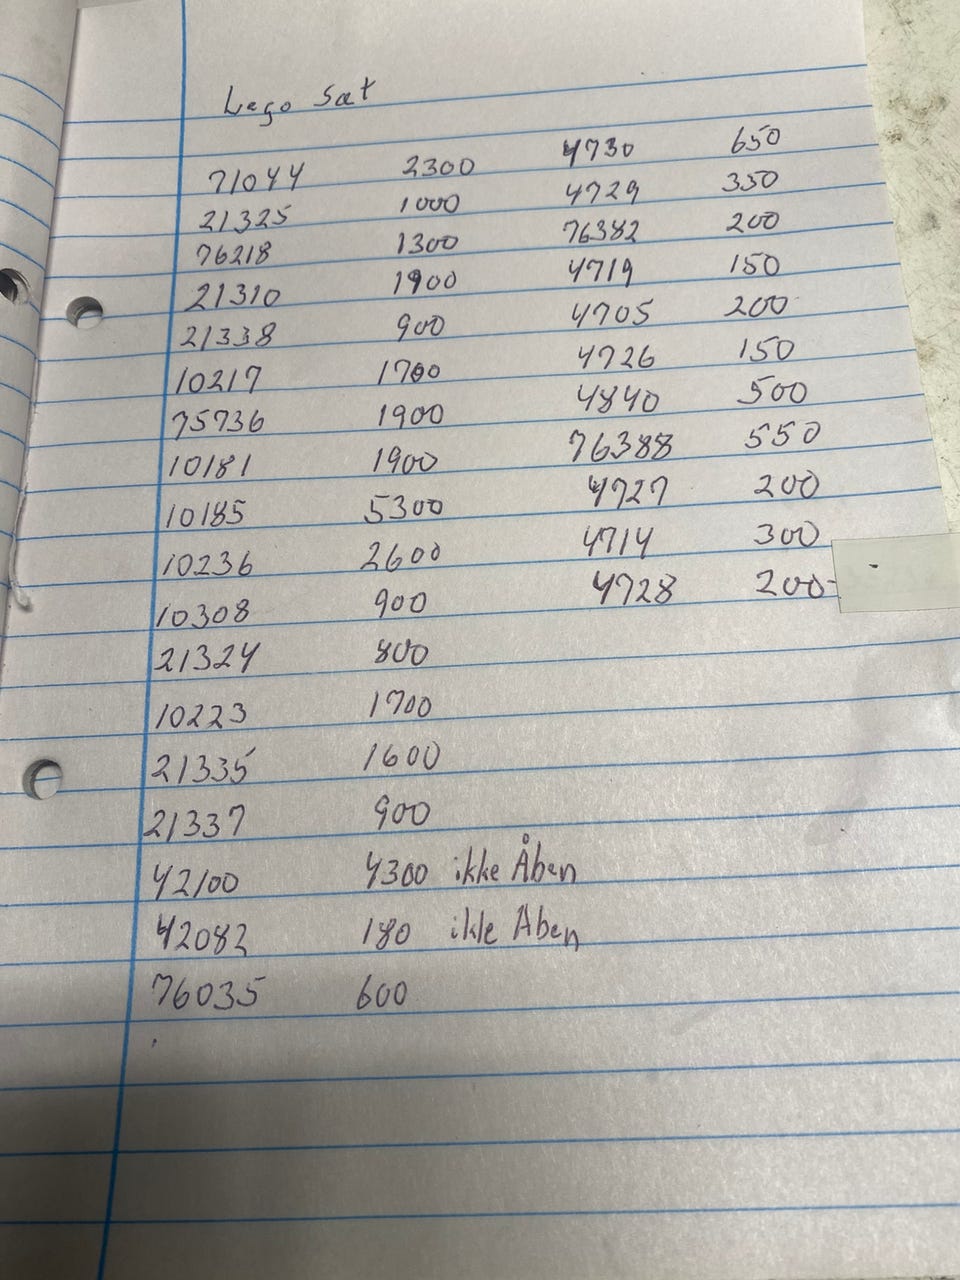 Lego Sæt
71044 2300 4730 650
21325 1000 4729 350
76218 1300 76382 200
21310 1900 4719 150
21338 900 4705 200
10217 1700 4726 150
75736 1900 4840 500
10181 1900 76388 550
10185 5300 4727 200
10236 2600 4714 300
10308 900 4728 200
21324 800
10223 1700
21335 1600
21337 900
42100 4300 ikke Åben
42082 180 ikke Åben
76035 600